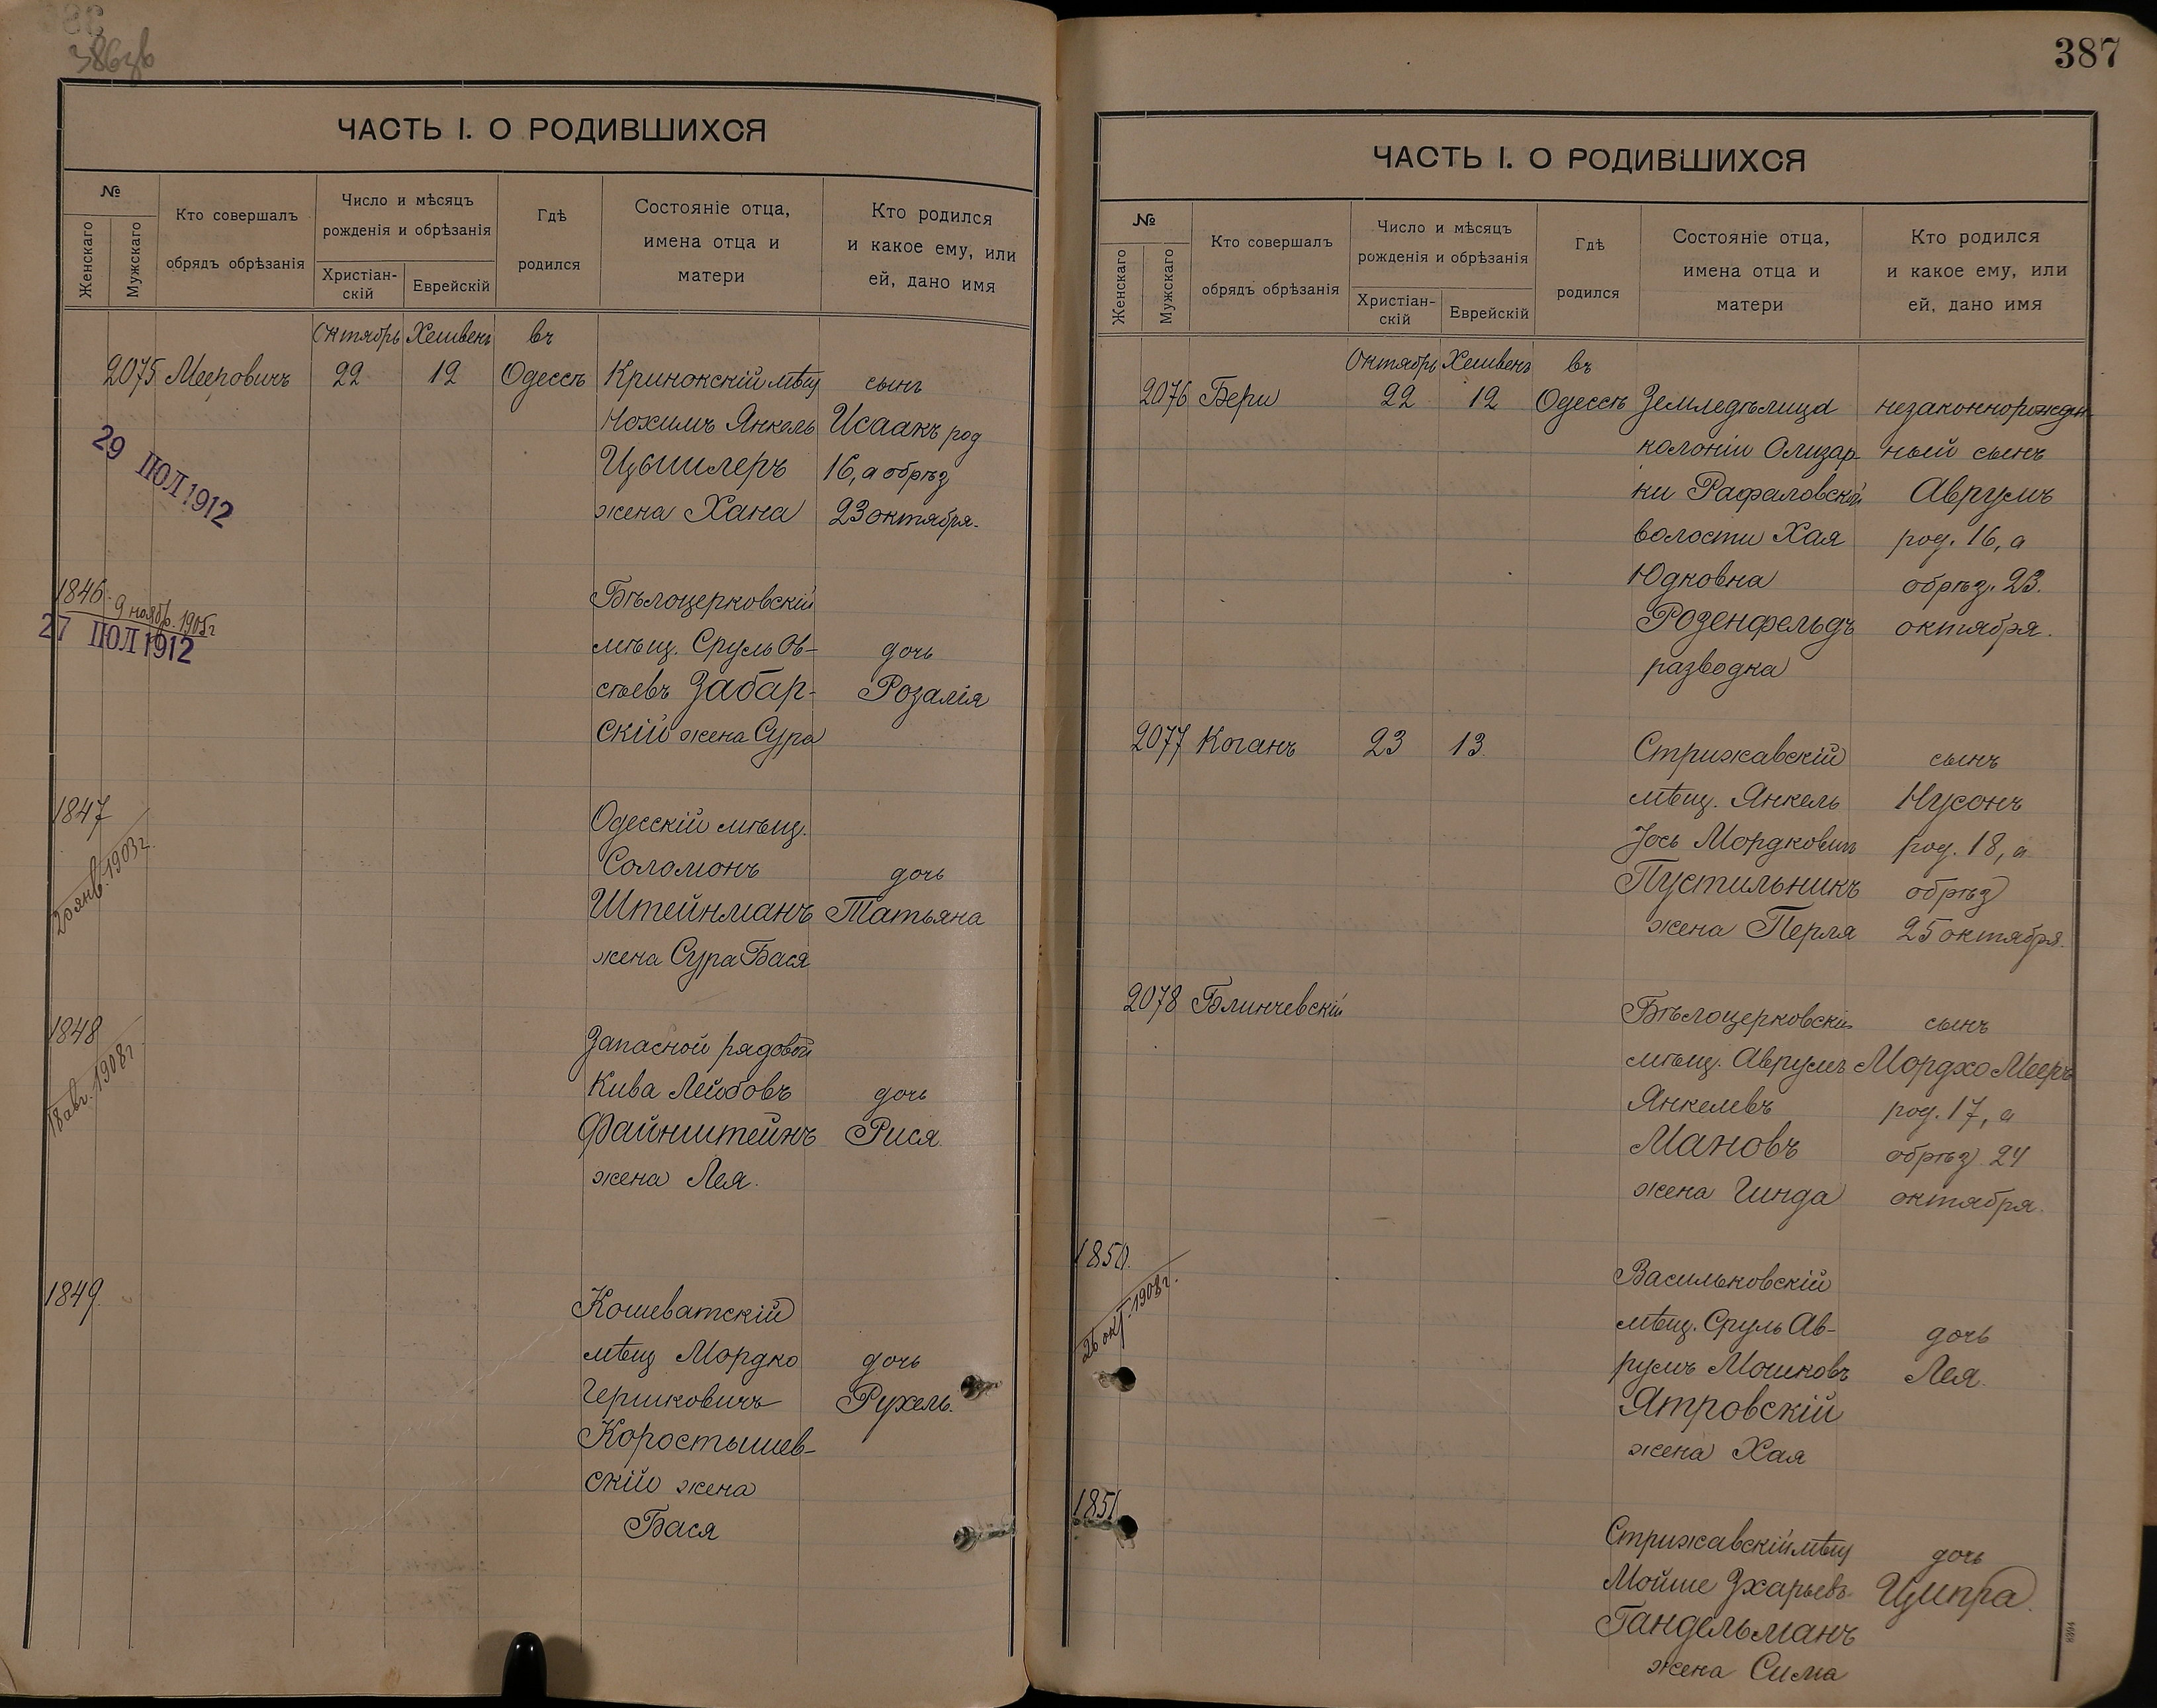 386об
ЧАСТЬ I. О РОДИВШИХСЯ
№
Женскаго
Мужскаго
Кто совершалъ
обрядъ обрѣзанія
Число и мѣсяцъ
рожденія и обрѣзанія
Христіан-
скій
Еврейскій
Гдѣ
родился
Состояніе отца,
имена отца и
матери
Кто родился
и какое ему, или
ей, дано имя
Октябрь Хешвенъ въ
2075 Мееровичъ 22 12 Одессѣ Кринокскій мѣщ сынъ
Нохимъ Янкель Исаакъ род
Цвышлеръ 16, а обрѣз
жена Хана 23 октября.
29 ІЮЛ 1912
1846 Бѣлоцерковскій
9 ноябр. 1905г
27 ІЮЛ 1912
мѣщ. Сруль Ов- дочь
сѣевъ Забар- Розалія
скій жена Сура
1847 Одесскій мѣщ.
20 янв. 1903г.
Соломонъ дочь
Штейнманъ Татьяна
жена Сура Бася
1848 Запасной рядовой
18 авг. 1908г.
Кива Лейбовъ дочь
Файнштейнъ Рися
жена Лея.
1849 Кошеватскій
мѣщ Мордко дочь
Гершковичъ Рухель.
Коростышев-
скій жена
Бася
387
ЧАСТЬ I. О РОДИВШИХСЯ
№
Женскаго
Мужскаго
Кто совершалъ
обрядъ обрѣзанія
Число и мѣсяцъ
рожденія и обрѣзанія
Христіан-
скій
Еврейскій
Гдѣ
родился
Состояніе отца,
имена отца и
матери
Кто родился
и какое ему, или
ей, дано имя
Октябрь Хешвенъ въ
2076 Бери 22 12 Одессѣ Земледѣлица незаконнорожден
колоніи Олизар- ный сынъ
ки Рафаловской Аврумъ
волости Хая род. 16, а
Юдковна обрѣз. 23.
Розенфельдъ октября.
разводка
2077 Коганъ 23 13. Стрижавскій сынъ
мѣщ. Янкель Нусонъ
Іось Мордковичъ род. 18, а
Пустильникъ обрѣз
жена Перля 25 октября.
2078 Блинчевскій Бѣлоцерковскій сынъ
мѣщ. Аврумъ Мордхо Мееръ
Янкелевъ род. 17, а
Мановъ обрѣз 24
жена Гинда октября.
1850. Васильковскій
26 окт. 1908г.
мѣщ. Сруль Ав- дочь
румъ Мошковъ Лея.
Ятровскій
жена Хая
1851 Стрижавскій мѣщ дочь
Мойше Зхарьевъ Ципра.
Гандельманъ
жена Сима